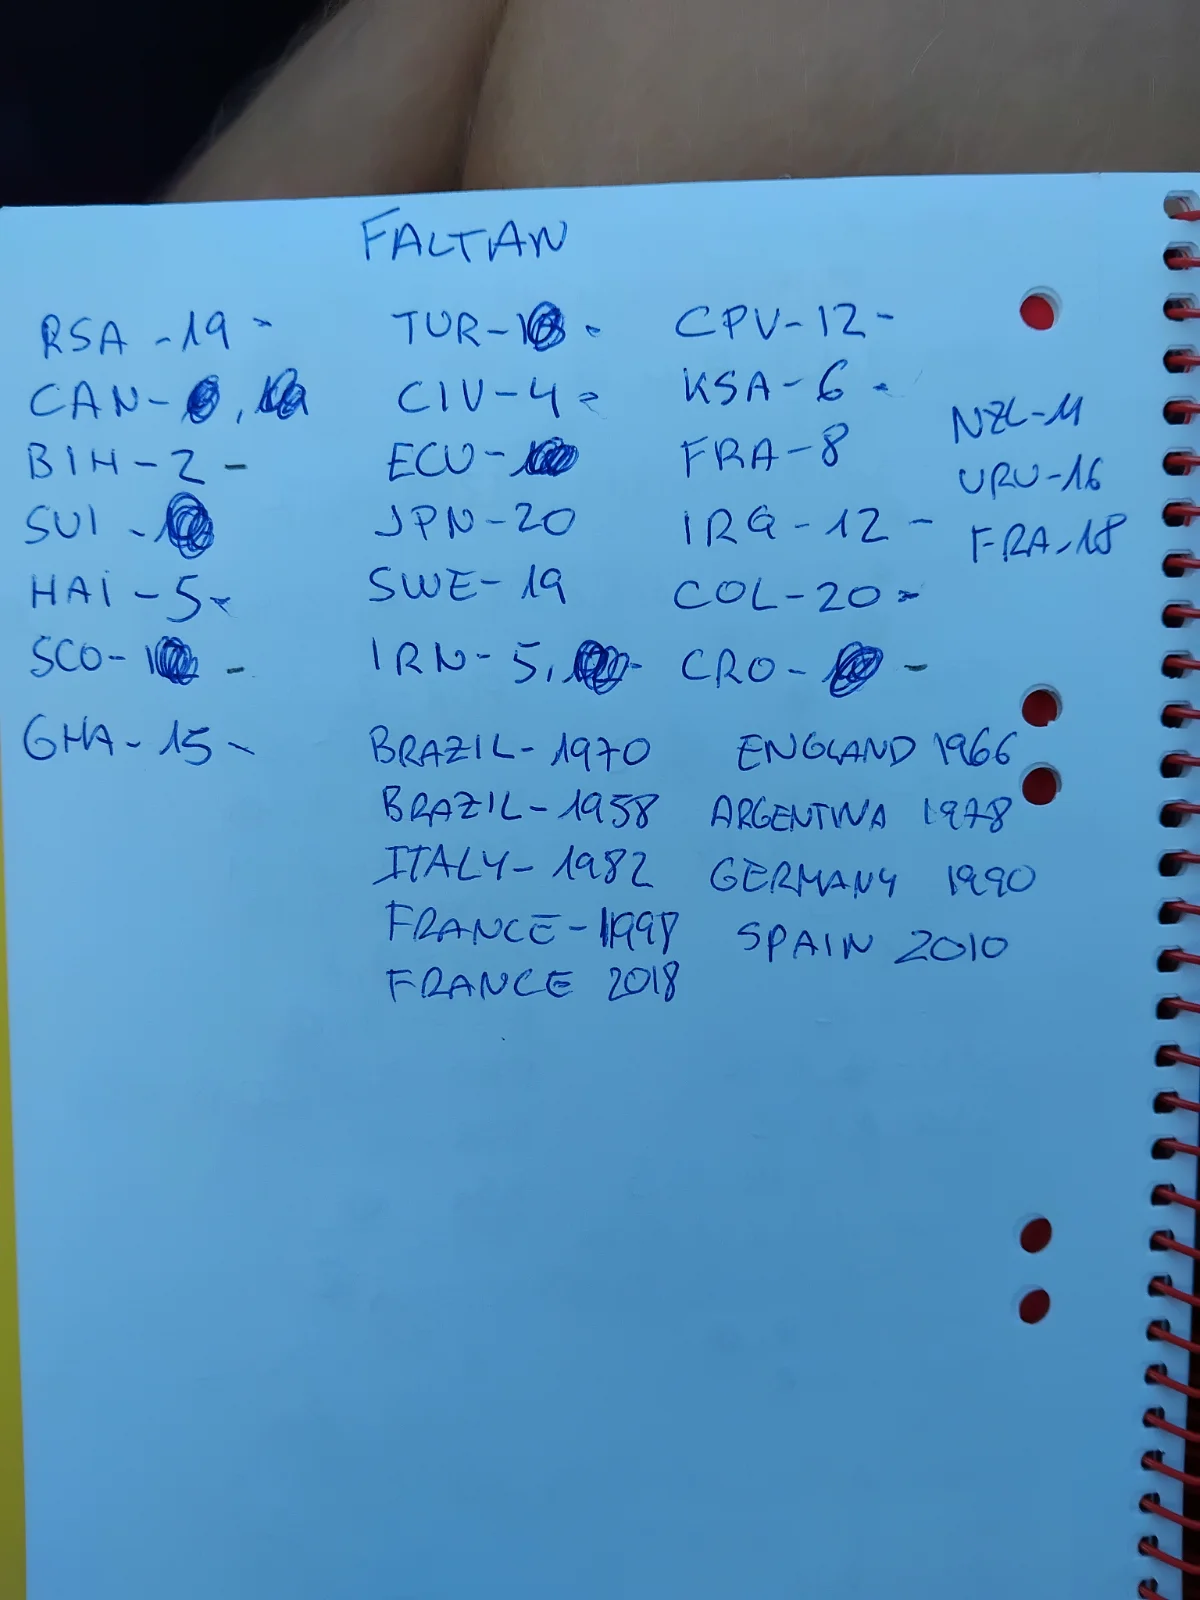 FALTAN
RSA - 19 -
CAN -
BIH - 2 -
SUI -
HAI - 5 -
SCO -
GHA - 15 -
TUR -
CIV - 4 -
ECU -
JPN - 20
SWE - 19
IRN - 5,
CPV - 12 -
KSA - 6 -
FRA - 8
IRQ - 12 -
COL - 20 -
CRO -
NZL - 11
URU - 16
FRA - 18
BRAZIL - 1970
BRAZIL - 1958
ITALY - 1982
FRANCE - 1998
FRANCE 2018
ENGLAND 1966
ARGENTINA 1978
GERMANY 1990
SPAIN 2010